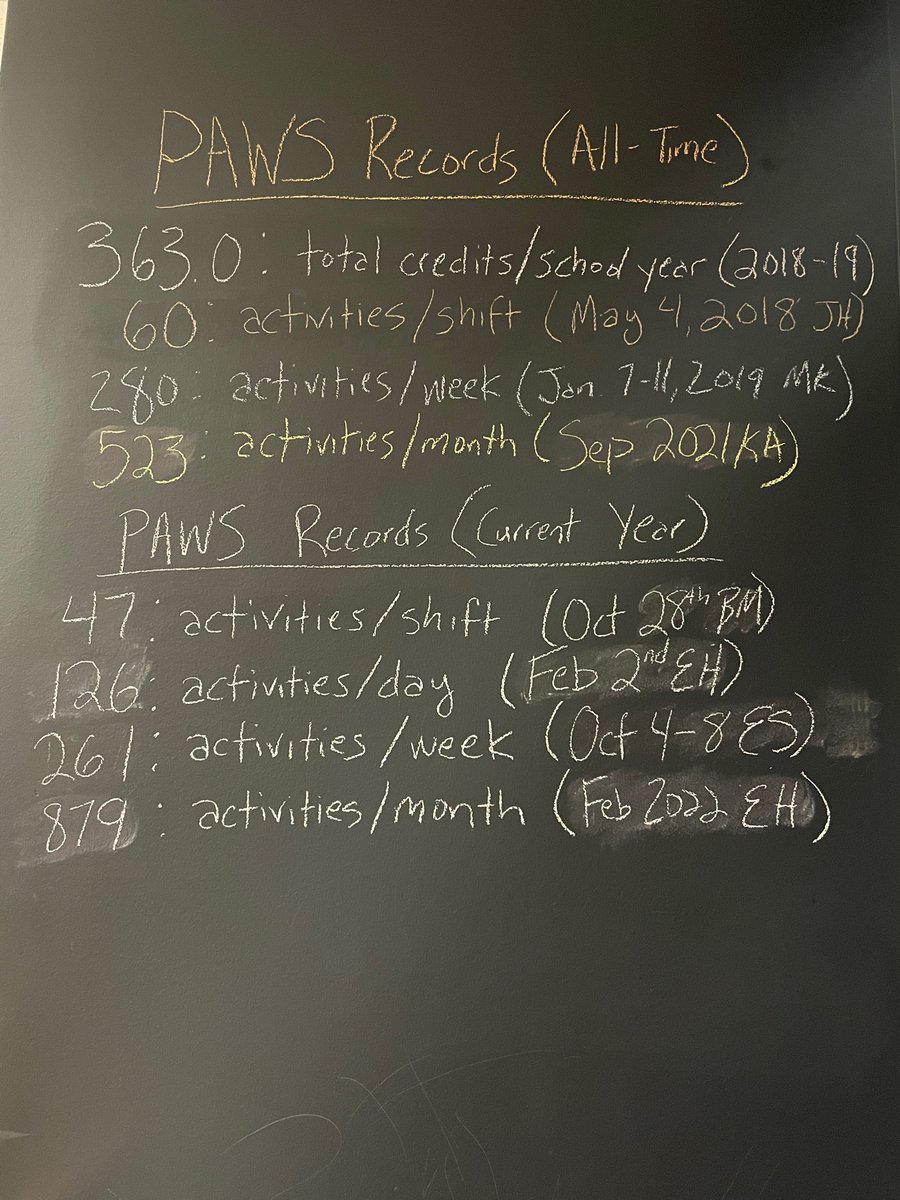 PAWS Records (All-Time)
363.0: total credits/school year (2018-19)
60: activities/shift (May 4, 2018 JH)
280: activities/week (Jan. 7-11, 2019 MK)
523: activities/month (Sep 2021 KA)
PAWS Records (Current Year)
47: activities/shift (Oct 28th BM)
126: activities/day (Feb 2nd EH)
261: activities/week (Oct 4-8 ES)
879: activities/month (Feb 2022 EH)